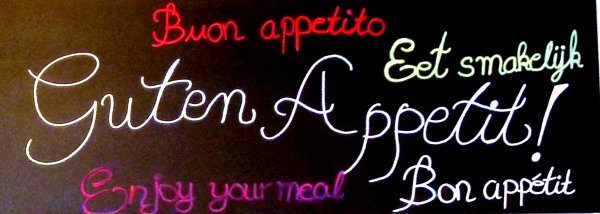 Buon appetito
Eet smakelijk
Guten Appetit!
Enjoy your meal
Bon appétit